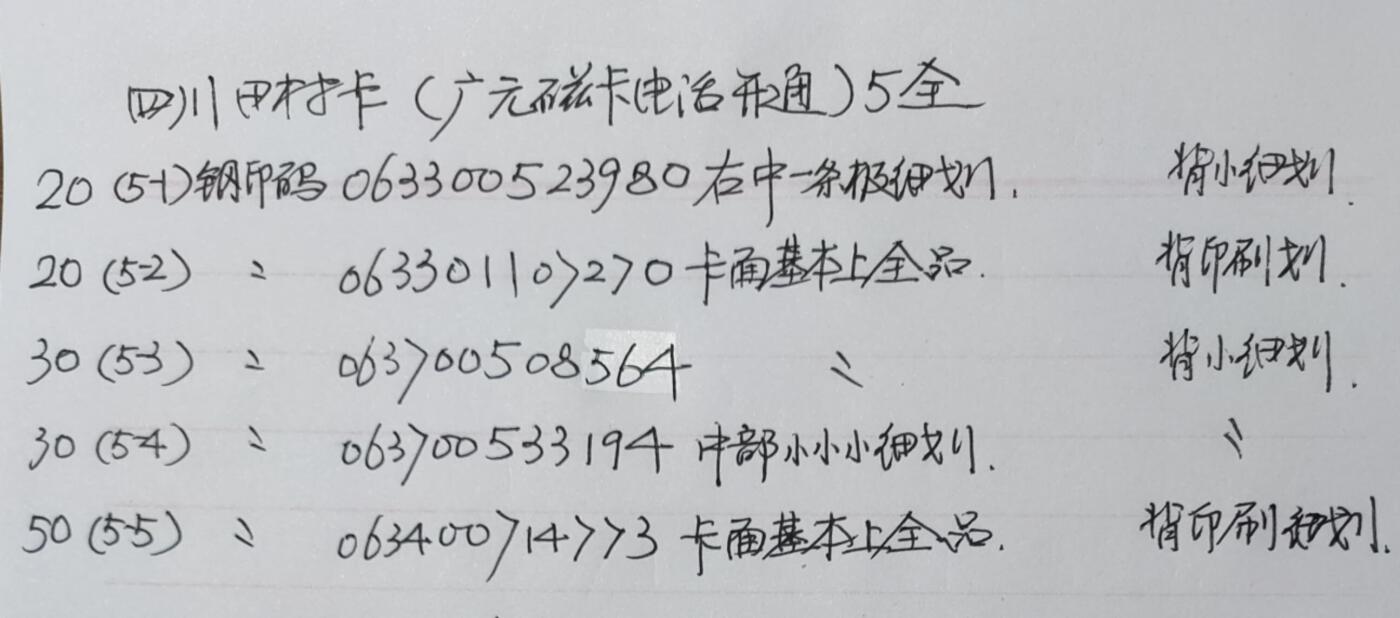 四川田村卡(广元磁卡电话开通)5全
20(5-1)钢印码 063300523980 右中一条极细划. 背小细划.
20(5-2) 〃 063301107270 卡面基本上全品. 背印刷划.
30(5-3) 〃 063700508564 〃 背小细划.
30(5-4) 〃 063700533194 中部小小小细划. 〃
50(5-5) 〃 063400714773 卡面基本上全品. 背印刷细划.